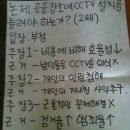 논제: 공공장소에 CCTV 설치를
늘려야 하는가? (2배)
입장: 부정
주장1 - 비용에 비해 효율성↓
근거 - 범인들도 CCTV를 의식
주장2 - 개인의 인권침해
근거 - 개인의 지나친 사익추구
주장3 - 근본적인 문제해결 X
근거 - 검거율↑ 범죄율↑